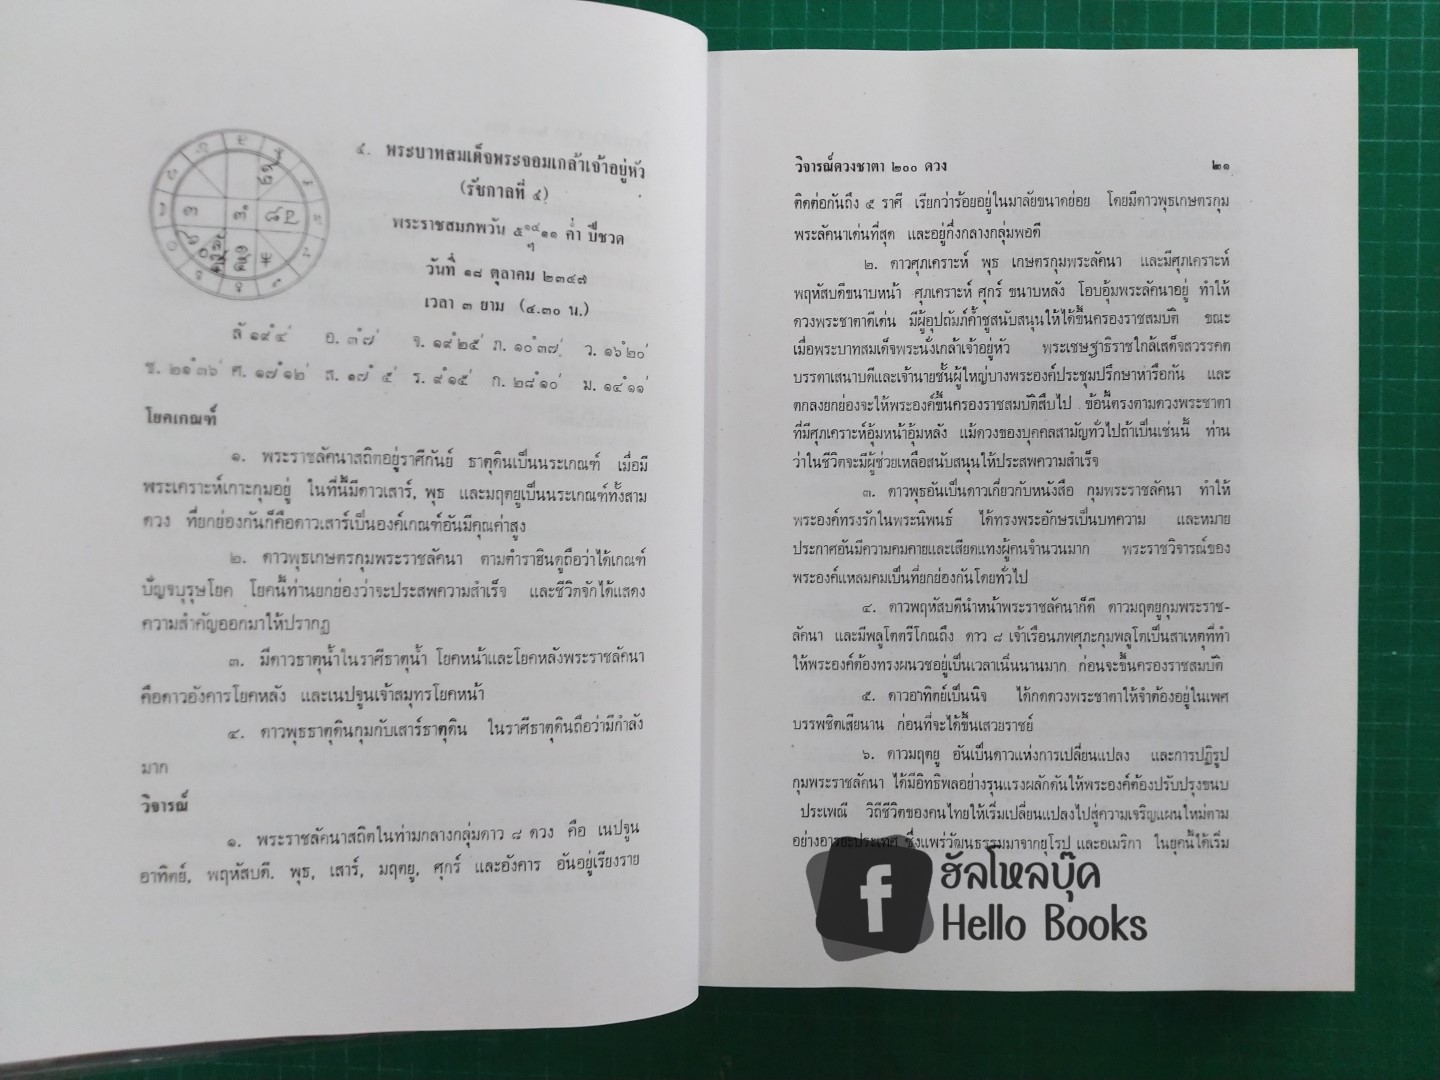 ๔. พระบาทสมเด็จพระจอมเกล้าเจ้าอยู่หัว
(รัชกาลที่ ๔)
พระราชสมภพวัน ๕ ๑๔ ๑๑ ค่ำ ปีชวด
วันที่ ๑๘ ตุลาคม ๒๓๔๗
เวลา ๓ ยาม (๔.๓๐ น.)
ลั ๑๙° ๔′ อ. ๓° ๗′ จ. ๑๙° ๒๕′ ภ. ๑๐° ๓๗′ ว. ๑๖° ๒๐′
ช. ๒๑° ๓๖′ ศ. ๑๗° ๑๒′ ส. ๑๗° ๕′ ร. ๙° ๑๕′ ก. ๒๘° ๑๐′ ม. ๑๔° ๑๑′
โยคเกณฑ์
๑. พระราชลัคนาสถิตอยู่ราศีกันย์ ธาตุดินเป็นนระเกณฑ์ เมื่อมี
พระเคราะห์เกาะกุมอยู่ ในที่นี้มีดาวเสาร์, พุธ และมฤตยูเป็นนระเกณฑ์ทั้งสาม
ดวง ที่ยกย่องกันก็คือดาวเสาร์เป็นองค์เกณฑ์อันมีคุณค่าสูง
๒. ดาวพุธเกษตรกุมพระราชลัคนา ตามตำราฮินดูถือว่าได้เกณฑ์
ปัญจบุรุษโยค โยคนี้ท่านยกย่องว่าจะประสพความสำเร็จ และชีวิตจักได้แสดง
ความสำคัญออกมาให้ปรากฏ
๓. มีดาวธาตุน้ำในราศีธาตุน้ำ โยคหน้าและโยคหลังพระราชลัคนา
คือดาวอังคารโยคหลัง และเนปจูนเจ้าสมุทรโยคหน้า
๔. ดาวพุธธาตุดินกุมกับเสาร์ธาตุดิน ในราศีธาตุดินถือว่ามีกำลัง
มาก
วิจารณ์
๑. พระราชลัคนาสถิตในท่ามกลางกลุ่มดาว ๘ ดวง คือ เนปจูน
อาทิตย์, พฤหัสบดี. พุธ, เสาร์, มฤตยู, ศุกร์ และอังคาร อันอยู่เรียงราย
วิจารณ์ดวงชาตา ๒๐๐ ดวง ๒๑
ติดต่อกันถึง ๕ ราศี เรียกว่าร้อยอยู่ในมาลัยขนาดย่อย โดยมีดาวพุธเกษตรกุม
พระลัคนาเด่นที่สุด และอยู่กึ่งกลางกลุ่มพอดี
๒. ดาวศุภเคราะห์ พุธ เกษตรกุมพระลัคนา และมีศุภเคราะห์
พฤหัสบดีขนาบหน้า ศุภเคราะห์ ศุกร์ ขนาบหลัง โอบอุ้มพระลัคนาอยู่ ทำให้
ดวงพระชาตาดีเด่น มีผู้อุปถัมภ์ค้ำชูสนับสนุนให้ได้ขึ้นครองราชสมบัติ ขณะ
เมื่อพระบาทสมเด็จพระนั่งเกล้าเจ้าอยู่หัว พระเชษฐาธิราชใกล้เสด็จสวรรคต
บรรดาเสนาบดีและเจ้านายชั้นผู้ใหญ่บางพระองค์ประชุมปรึกษาหารือกัน และ
ตกลงยกย่องจะให้พระองค์ขึ้นครองราชสมบัติสืบไป ข้อนี้ตรงตามดวงพระชาตา
ที่มีศุภเคราะห์อุ้มหน้าอุ้มหลัง แม้ดวงของบุคคลสามัญทั่วไปถ้าเป็นเช่นนี้ ท่าน
ว่าในชีวิตจะมีผู้ช่วยเหลือสนับสนุนให้ประสพความสำเร็จ
๓. ดาวพุธอันเป็นดาวเกี่ยวกับหนังสือ กุมพระราชลัคนา ทำให้
พระองค์ทรงรักในพระนิพนธ์ ได้ทรงพระอักษรเป็นบทความ และหมาย
ประกาศอันมีความคมคายและเสียดแทงผู้คนจำนวนมาก พระราชวิจารณ์ของ
พระองค์แหลมคมเป็นที่ยกย่องกันโดยทั่วไป
๔. ดาวพฤหัสบดีนำหน้าพระราชลัคนาก็ดี ดาวมฤตยูกุมพระราช-
ลัคนา และมีพลูโตตรีโกณถึง ดาว ๘ เจ้าเรือนภพศุภะกุมพลูโตเป็นสาเหตุที่ทำ
ให้พระองค์ต้องทรงผนวชอยู่เป็นเวลาเนิ่นนานมาก ก่อนจะขึ้นครองราชสมบัติ
๕. ดาวอาทิตย์เป็นนิจ ได้กดดวงพระชาตาให้จำต้องอยู่ในเพศ
บรรพชิตเสียนาน ก่อนที่จะได้ขึ้นเสวยราชย์
๖. ดาวมฤตยู อันเป็นดาวแห่งการเปลี่ยนแปลง และการปฏิรูป
กุมพระราชลัคนา ได้มีอิทธิพลอย่างรุนแรงผลักดันให้พระองค์ต้องปรับปรุงขนบ
ประเพณี วิถีชีวิตของคนไทยให้เริ่มเปลี่ยนแปลงไปสู่ความเจริญแผนใหม่ตาม
อย่างอารยะประเทศ ซึ่งแพร่วัฒนธรรมมาจากยุโรป และอเมริกา ในยุคนี้ได้เริ่ม
f
ฮัลโหลบุ๊ค
Hello Books